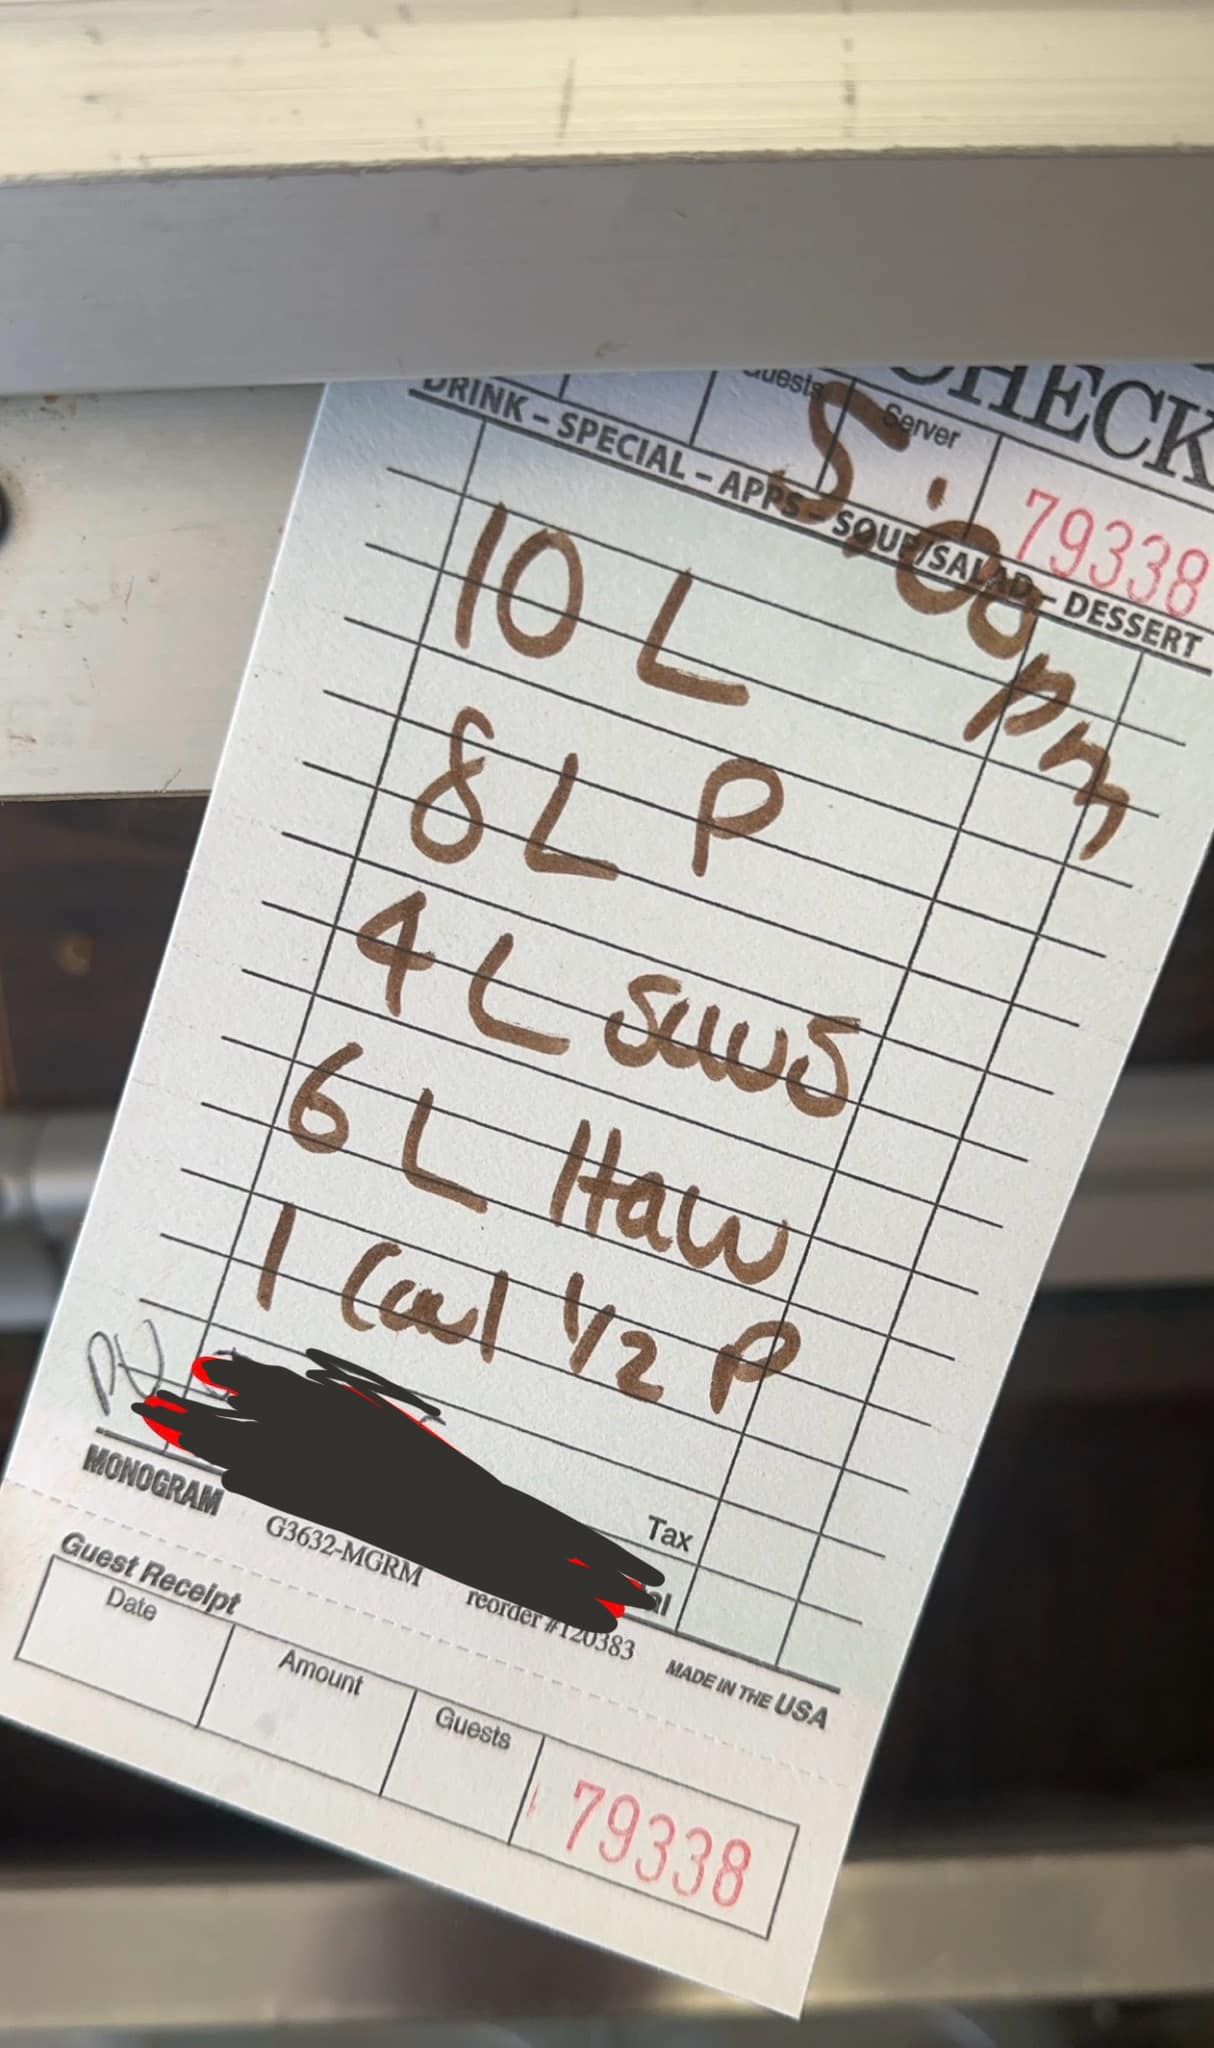 CHECK
Guests Server
79338
5:00pm
DRINK – SPECIAL – APPS – SOUP/SALAD – DESSERT
10 L
8 L P
4 L saus
6 L Haw
1 Caul 1/2 P
Tax
MONOGRAM G3632-MGRM reorder #120383 MADE IN THE USA
Guest Receipt
Date Amount Guests
79338